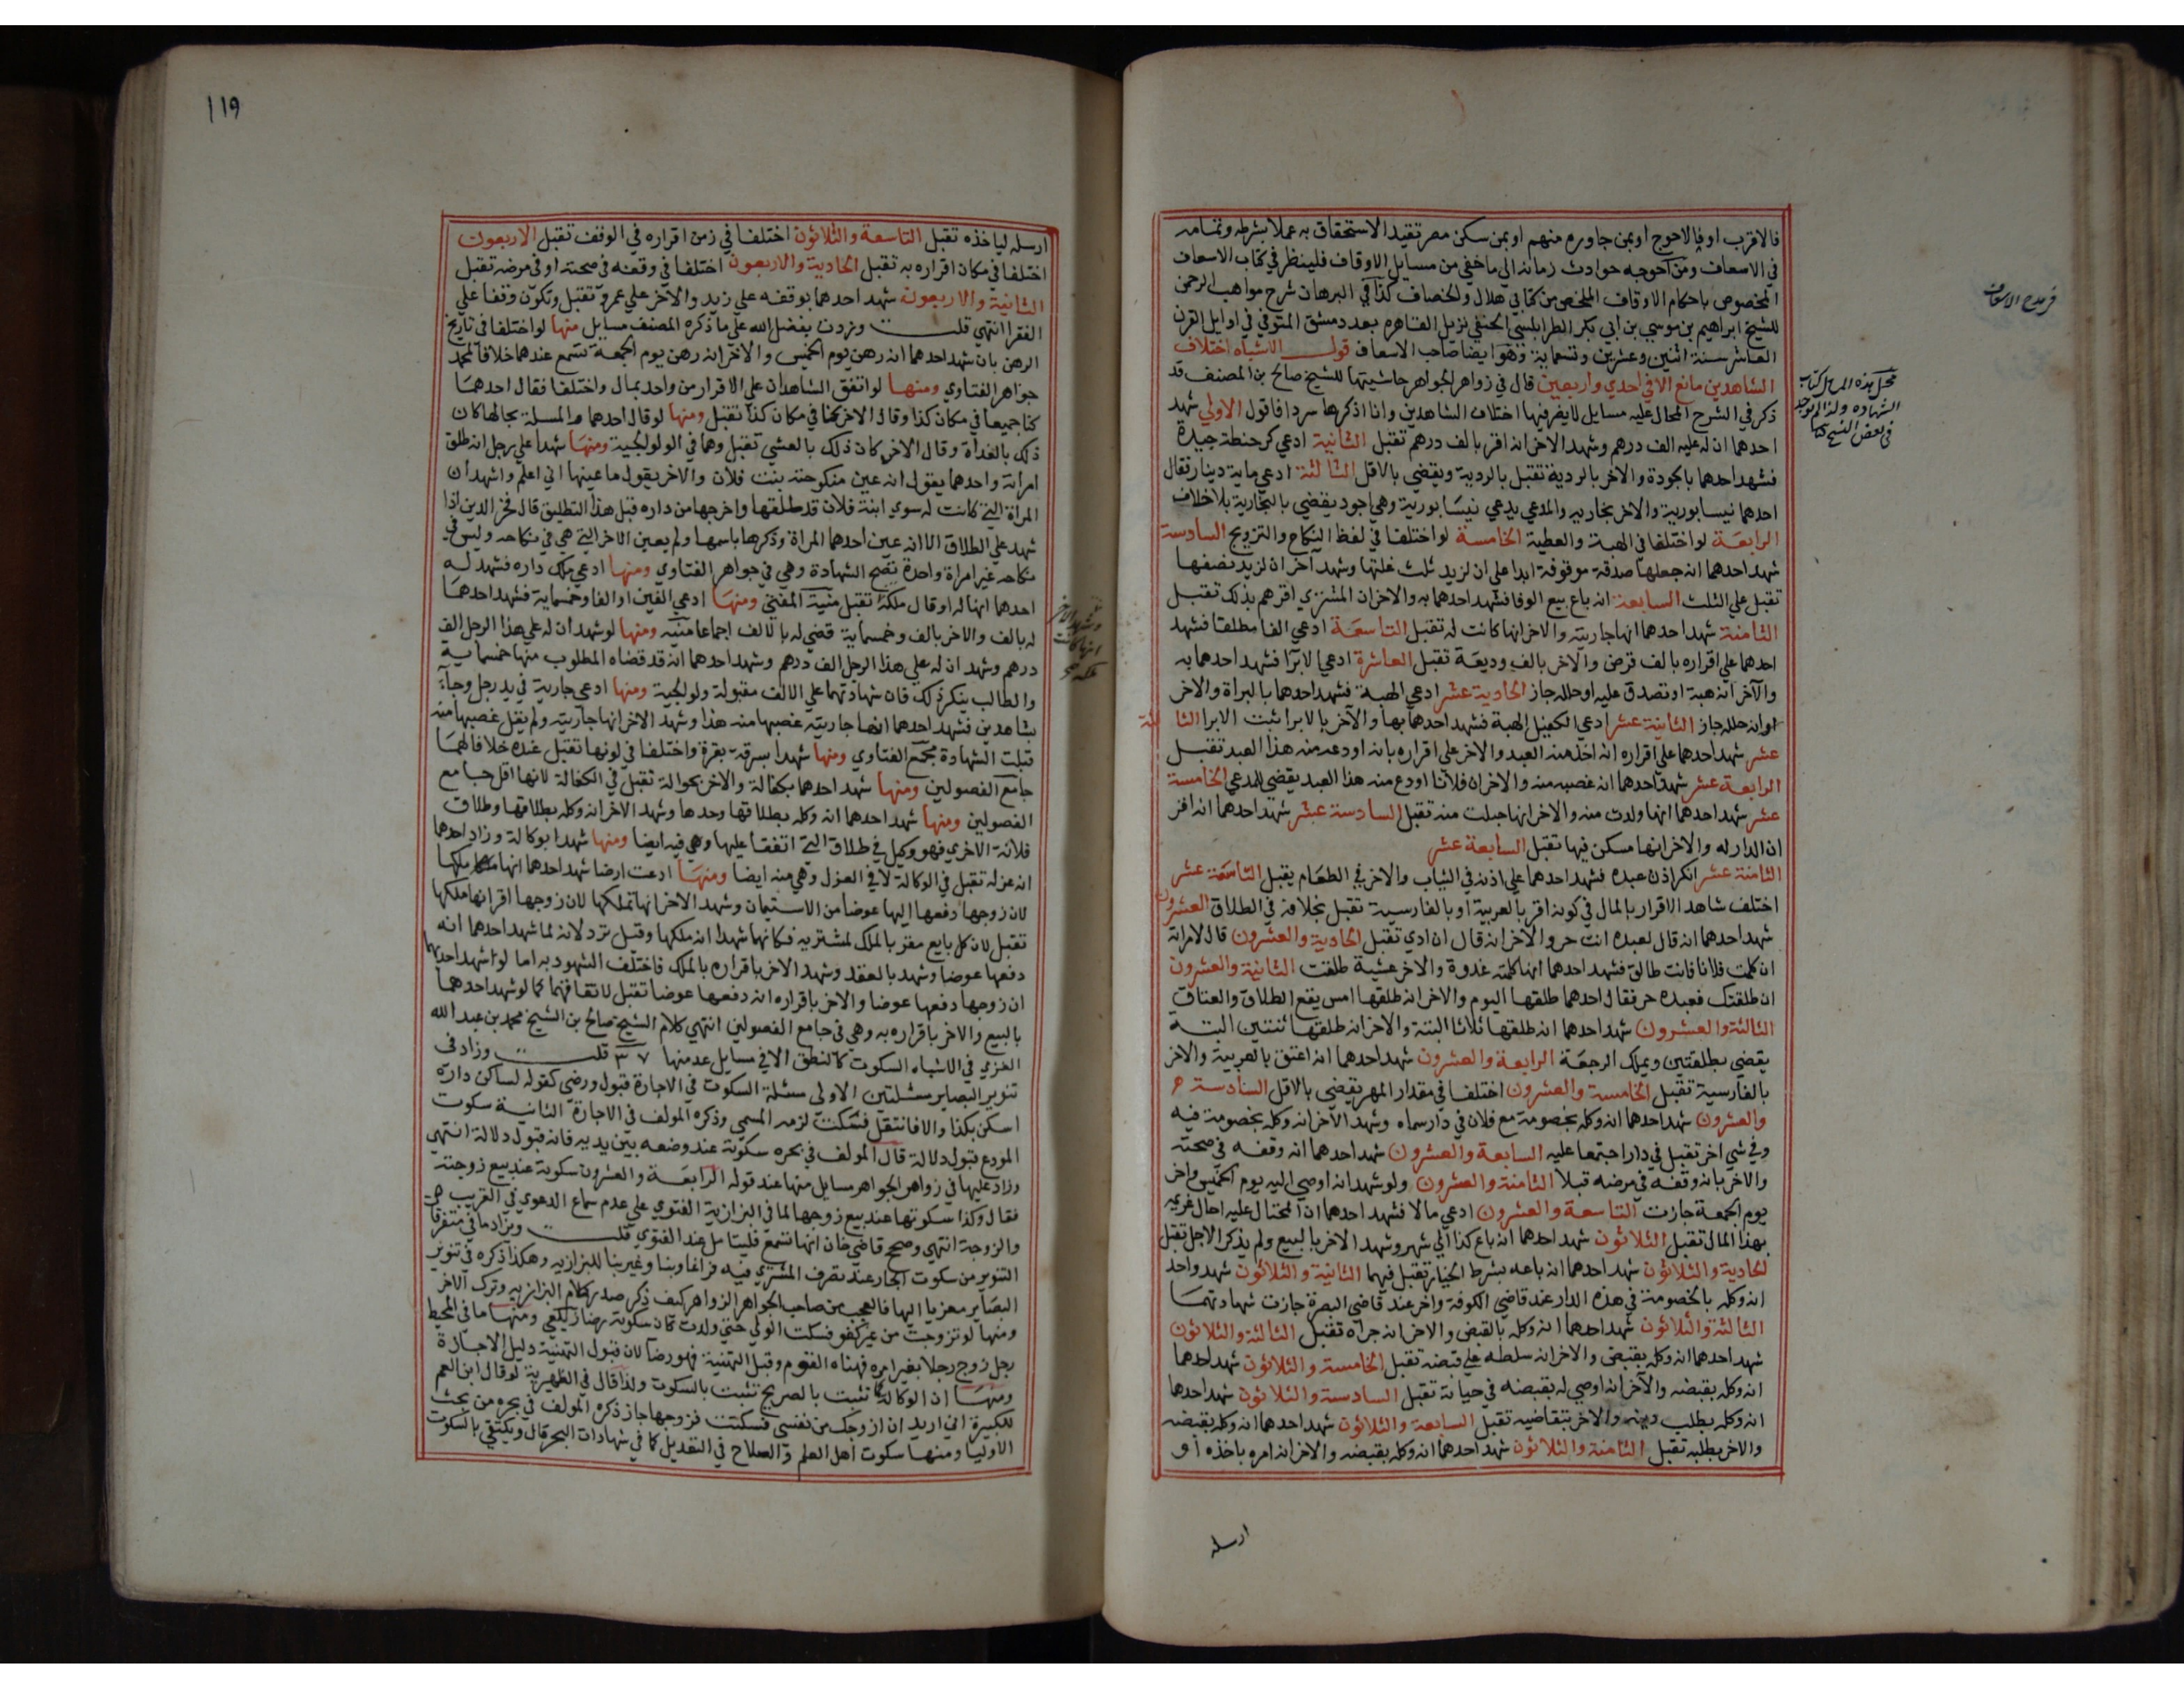 فالاقرب او فالاحوج او بمن جاوره منهم او بمن سكن مصر تقيد الاستحقاق به عملا بشرطه وتمامه
في الاسعاف ومن احوجه حوادث زمانه الي ما خفي من مسايل الاوقاف فلينظر في كتاب الاسعاف
المخصوص باحكام الاوقاف الملخص من كتابي هلال والخصاف كذا في البرهان شرح مواهب الرحمن
للشيخ ابراهيم بن موسي بن ابي بكر الطرابلسي الحنفي نزيل القاهره بعد دمشق المتوفي في اوايل القرن
العاشر سنة اثنين وعشرين وتسعماية وهو ايضا صاحب الاسعاف قولــــ الاشباه اختلاف
الشاهدين مانع الا في احدي واربعين قال في زواهر الجواهر حاشيتها للشيخ صالح بن المصنف قد
ذكر في الشرح المحال عليه مسايل لا يضر فيها اختلاف الشاهدين وانا اذكرها سردا فاقول الاولي شهد
احدهما ان له عليه الف درهم وشهد الاخر انه اقر بالف درهم تقبل الثانية ادعي كر حنطة جيدة
فشهد احدهما بالجودة والاخر بالردية تقبل بالردية ويقضي بالاقل الثالثة ادعي ماية دينار فقال
احدهما نيسابورية والاخر بخاريه والمدعي يدعي نيسابورية وهي اجود يقضي بالبخارية بلا خلاف
الرابعة لو اختلفا في الهبة والعطية الخامسة لو اختلفا في لفظ النكاح والتزويج السادسة
شهد احدهما انه جعلها صدقة موقوفة ابدا علي ان لزيد ثلث غلتها وشهد آخر ان لزيد نصفها
تقبل علي الثلث السابعة انه باع بيع الوفا فشهد احدهما به والاخر ان المشتري اقر هم بذلك تقبل
الثامنة شهد احدهما انها جاريته والاخر انها كانت له تقبل التاسعة ادعي الفا مطلقا فشهد
احدهما علي اقراره بالف قرض والآخر بالف وديعة تقبل العاشرة ادعي الابرا فشهد احدهما به
والآخر انه هبة او تصدق عليه او حلله جاز الحادية عشر ادعي الهبة فشهد احدهما بالبراة والاخر
او انه حلله جاز الثانية عشر ادعي الكفيل الهبة فشهد احدهما بها والآخر بالابرا ثبت الابرا الثالثة
عشر شهد احدهما علي اقراره انه اخذ منه العبد والاخر علي اقراره بانه اودعه منه هذا العبد تقبل
الرابعة عشر شهد احدهما انه غصبه منه والاخر ان فلانا اودع منه هذا العبد يقضي للمدعي الخامسة
عشر شهد احدهما انها ولدت منه والاخر انها حبلت منه تقبل السادسة عشر شهد احدهما انه اقر
ان الدار له والاخر انها سكن فيها تقبل السابعة عشر
الثامنة عشر انكر اذن عبده فشهد احدهما علي اذنه في الثياب والاخر في الطعام يقبل التاسعة عشر
اختلف شاهد الاقرار بالمال في كونه اقر بالعربية او بالفارسية تقبل بخلافه في الطلاق العشرون
شهد احدهما انه قال لعبده انت حر والآخر انه قال ان ادي تقبل الحادية والعشرون قال لامراته
ان كلمت فلانا فانت طالق فشهد احدهما انها كلمته غدوة والاخر عشية طلقت الثانية والعشرون
ان طلقتك فعبده حر فقال احدهما طلقها اليوم والاخر انه طلقها امس يقع الطلاق والعتاق
الثالثة والعشرون شهد احدهما انه طلقها ثلاثا البتة والاخر انه طلقها ثنتين البتة
يقضي بطلقتين ويملك الرجعة الرابعة والعشرون شهد احدهما انه اعتق بالعربية والاخر
بالفارسية تقبل الخامسة والعشرون اختلفا في مقدار المهر يقضي بالاقل السادسة
والعشرون شهد احدهما انه وكله بخصومة مع فلان في دار سماه وشهد الآخر انه وكله بخصومة فيه
وفي شي اخر تقبل في دار اجتمعا عليه السابعة والعشرون شهد احدهما انه وقفه في صحته
والاخر بانه وقفه في مرضه قبلا الثامنة والعشرون ولو شهد انه اوصي اليه يوم الخميس واخر
يوم الجمعة جازت التاسعة والعشرون ادعي مالا فشهد احدهما ان المحتال عليه احال غريمه
بهذا المال تقبل الثلاثون شهد احدهما انه باع كذا الي شهر وشهد الاخر بالبيع ولم يذكر الاجل تقبل
الحادية والثلاثون شهد احدهما انه باعه بشرط الخيار تقبل فيهما الثانية والثلاثون شهد واحد
انه وكله بالخصومة في هذه الدار عند قاضي الكوفة واخر عند قاضي البصرة جازت شهادتهما
الثالثة والثلاثون شهد احدهما انه وكله بالقبض والاخر انه جراه تقبل الثالثة والثلاثون
شهد احدهما انه وكله بقبض والاخر انه سلطه علي قبضه تقبل الخامسة والثلاثون شهد احدهما
انه وكله بقبضه والآخر انه اوصي له بقبضه في حياته تقبل السادسة والثلاثون شهد احدهما
انه وكله بطلب دينه والاخر بتقاضيه تقبل السابعة والثلاثون شهد احدهما انه وكله بقبضه
والاخر بطلبه تقبل الثامنة والثلاثون شهد احدهما انه وكله بقبضه والاخر انه امره باخذه او
ارسله
محل هذه المسايل كتاب
الشهاده ولذا لم توجد
في بعض النسخ هنا
119
ارسله لياخذه تقبل التاسعة والثلاثون اختلفا في زمن اقراره في الوقف تقبل الاربعون
اختلفا في مكان اقراره به تقبل الحادية والاربعون اختلفا في وقفه في صحته او في مرضه تقبل
الثانية والاربعون شهد احدهما بوقفه علي زيد والآخر علي عمرو تقبل وتكون وقفا علي
الفقرا انتهي قلــــت وزدت بفضل الله علي ما ذكره المصنف مسايل منها لو اختلفا في تاريخ
الرهن بان شهد احدهما انه رهن يوم الخميس والآخر انه رهن يوم الجمعة تسمع عندهما خلافا لمحمد
جواهر الفتاوي ومنها لو اتفق الشاهدان علي الاقرار من واحد بمال واختلفا فقال احدهما
كنا جميعا في مكان كذا وقال الاخر كنا في مكان كذا تقبل ومنها لو قال احدهما والمسلة بحالها كان
ذلك بالغداة وقال الاخر كان ذلك بالعشي تقبل وهما في الولولجية ومنها شهدا علي رجل انه طلق
امراته واحدهما يقول انه عين منكوحته بنت فلان والاخر يقول ما عينها اني اعلم واشهد ان
المراة التي كانت له سوي ابنة فلان قد طلقها واخرجها من داره قبل هذا التطليق قال فخر الدين اذا
شهد علي الطلاق الا انه عين احدهما المراة وذكرها باسمها ولم يعين الاخر التي هي في نكاحه وليس في
نكاحه غير امراة واحدة تصح الشهادة وهي في جواهر الفتاوي ومنها ادعي ملك داره فشهد له
احدهما انها له او قال ملكه تقبل منية المفتي ومنها ادعي الفين او الفا وخمسماية فشهد احدهما
له بالف والاخر بالف وخمسماية قضي له بالالف اجماعا منيه ومنها لو شهد ان له علي هذا الرجل الف
درهم وشهد ان له علي هذا الرجل الف درهم وشهد احدهما انه قد قضاه المطلوب منها خمسماية
والطالب ينكر ذلك فان شهادتهما علي الالف مقبولة ولولجية ومنها ادعي جارية في يد رجل وجاء
بشاهدين فشهد احدهما انها جاريته غصبها منه هذا وشهد الاخر انها جاريته ولم يقل غصبها منه
قبلت الشهادة مجمع الفتاوي ومنها شهدا بسرقة بقرة واختلفا في لونها تقبل عنده خلافا لهما
جامع الفصولين ومنها شهد احدهما بكفالة والاخر بحوالة تقبل في الكفالة لانها اقل جامع
الفصولين ومنها شهد احدهما انه وكله بطلاقها وحدها وشهد الاخر انه وكله بطلاقها وطلاق
فلانة الاخري فهو وكيل في طلاق التي اتفقا عليها وهي فيه ايضا ومنها شهدا بوكالة وزاد احدهما
انه عزله تقبل في الوكالة لا في العزل وهي منه ايضا ومنها ادعت ارضا شهد احدهما انها ملكها
لان زوجها دفعها اليها عوضا من الاستيمان وشهد الاخر انها تملكها لان زوجها اقر انها ملكها
تقبل لان كل بايع مقر بالملك لمشتريه فكانها شهدا انه ملكها وقيل ترد لانه لما شهد احدهما انه
دفعها عوضا وشهد بالعقد وشهد الاخر باقراره بالملك فاختلف الشهود به اما لو شهد احدهما
ان زوجها دفعها عوضا والاخر باقراره انه دفعها عوضا تقبل لاتفاقهما كما لو شهد احدهما
بالبيع والاخر باقراره به وهي في جامع الفصولين انتهي كلام الشيخ صالح بن الشيخ محمد بن عبد الله
الغزي في الاشباه السكوت كالنطق الا في مسايل عد منها ٣٧ قلــــت وزاد في
تنوير البصاير مسئلتين الاولى مسئلة السكوت في الاجارة قبول ورضي كقوله لساكن داره
اسكن بكذا والا فانتقل فسكت لزمه المسمي وذكره المولف في الاجارة الثانية سكوت
المودع قبول دلالة قال المولف في بحره سكوته عند وضعه بين يديه فانه قبول دلالة انتهي
وزاد عليها في زواهر الجواهر مسايل منها عند قوله الرابعة والعشرون سكوته عند بيع زوجته
فقال وكذا سكوتها عند بيع زوجها لما في البزازية الفتوي علي عدم سماع الدعوي في القريب
والزوجة انتهي وصحح قاضي خان انها تسمع فليتامل عند الفتوي قلــــت ويزاد ما في متفرقات
التنوير من سكوت الجار عند تصرف المشتري فيه زراعا وبنا وعزينا للبزازيه وهكذا ذكره في تنوير
البصاير معزيا اليها فالعجب من صاحب الجواهر الزواهر كيف ذكر صدر كلام البزازيه وترك الآخر
ومنها لو تزوجت من غير كفو فسكت الولي حتي ولدت كان سكوته رضا زيلعي ومنها ما في المحيط
رجل زوج رجلا بغير امره فهناه القوم وقبل التهنية فهو رضا لان قبول التهنية دليل الاجازة
ومنها ان الوكالة تثبت بالصريح تثبت بالسكوت ولذا قال في الظهيرية لو قال ابن العم
للكبيرة اني اريد ان ازوجك من نفسي فسكتت فزوجها جاز ذكره المولف في بحره من بحث
الاوليا ومنها سكوت اهل العلم والصلاح في التعديل كما في شهادات البحر قال ويكتفي بالسكوت